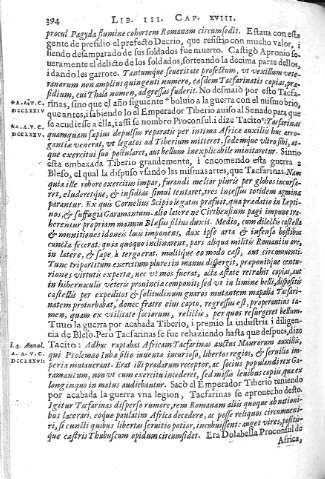 394 LIB. III. CAP. XVIII.
procul Pagyda flumine cohortem Romanam circumsedit. Estaua con esta
gente de presidio el prefecto Decrio, que resistio con mucho valor, i
siendo desamparado de sus soldados fue muerto. Castigò Apronio se-
ueramente el delicto de los soldados, sorteando la decima parte dellos,
i dando les garrote. Tantumque seueritate profectum, vt vexillum vete-
ranorum non amplius quingenti numero, easdem Tacfarinatis copias, præ-
sidium, cui Thala nomen, adgressas fuderit. No desmaiò por esto Tacfa-
rinas, sino que el año siguiente boluio a la guerra con el mismo brio,
que antes, i sabiendo lo el Emperador Tiberio auiso al Senado para que
se acudiesse a ella, i assi se nombro Proconsul, i dize Tacito: Tacfarinas
quamquam sæpius depulsus reparatis per intima Africæ auxiliis huc arro-
gantiæ venerat, vt legatos ad Tiberium mitteret, sedemque vltro sibi, at-
que exercitui suo postularet, aut bellum inexplicabile minitaretur. Sintio
esta embaxada Tiberio grandemente, i encomendo esta guerra a
Bleso, el qual la dispuso vsando las mismas artes, que Tacfarinas. Nam
quia ille robore exercitus impar, furandi melior plures per globos incursa-
ret, eluderetque, & insidias simul tentaret, tres incessus totidem agmina
parantur. Ex quis Cornelius Scipio legatus præfuit, qua prædatio in Lepti-
nos, & suffugia Garamantum. alio latere ne Cirthensium pagi impune tra-
herentur propriam manum Blæsus filius duxit. Medio, cum delectis castella
& munitiones idoneis locis imponens, dux ipse arta & infensa hostibus
cuncta fecerat. quia quoquo inclinarent, pars aliqua militis Romani in ore,
in latere, & sæpe à tergo erat. multique eo modo cæsi, aut circumuenti
Tunc tripartitum exercitum plures in manus dispergit, præponitque centu-
riones virtutis expertæ, nec vt mos fuerat, acta æstate retrahit copias, aut
in hibernaculis veteris prouinciæ componit, sed vt in limine belli, dispositis
castellis per expeditos & solitudinum gnaros mutantem mapalia Tacfari-
natem proturbabat, donec fratre eius capto, regressus est, properantius ta-
men, quam ex vtilitate sociorum, relictis, per quos resurgeret bellum.
Tuuo la guerra por acabada Tiberio, i premio la industria i diligen-
cia de Bleso. Pero Tacfarinas se fue rehaziendo hasta que despues, dize
Tacito: Adhuc raptabat Africam Tacfarinas auctus Maurorum auxiliis,
qui Ptolemæo Iubæ filio iuuenta incurioso, libertos regios, & seruilia im-
peria mutauerant. Erat illi prædarum receptor, ac socius populandi rex Ga-
ramantum, non vt cum exercitu incederet, sed missis leuibus copiis, quæ ex
longinquo in maius audiebantur. Sacò el Emperador Tiberio teniendo
por acabada la guerra vna legion, Tacfarinas se aprouecho desto.
Igitur Tacfarinas disperso rumore, rem Romanam aliis quoque ab nationi-
bus lacerari, eoque paulatim Africa decedere, ac posse reliquos circumueni-
ri, si cuncti quibus libertas seruitio potior, incubuissent: auget vires, positis-
que castris Thubuscum opidum circumsidet. Era Dolabella Proconsul de
Africa,